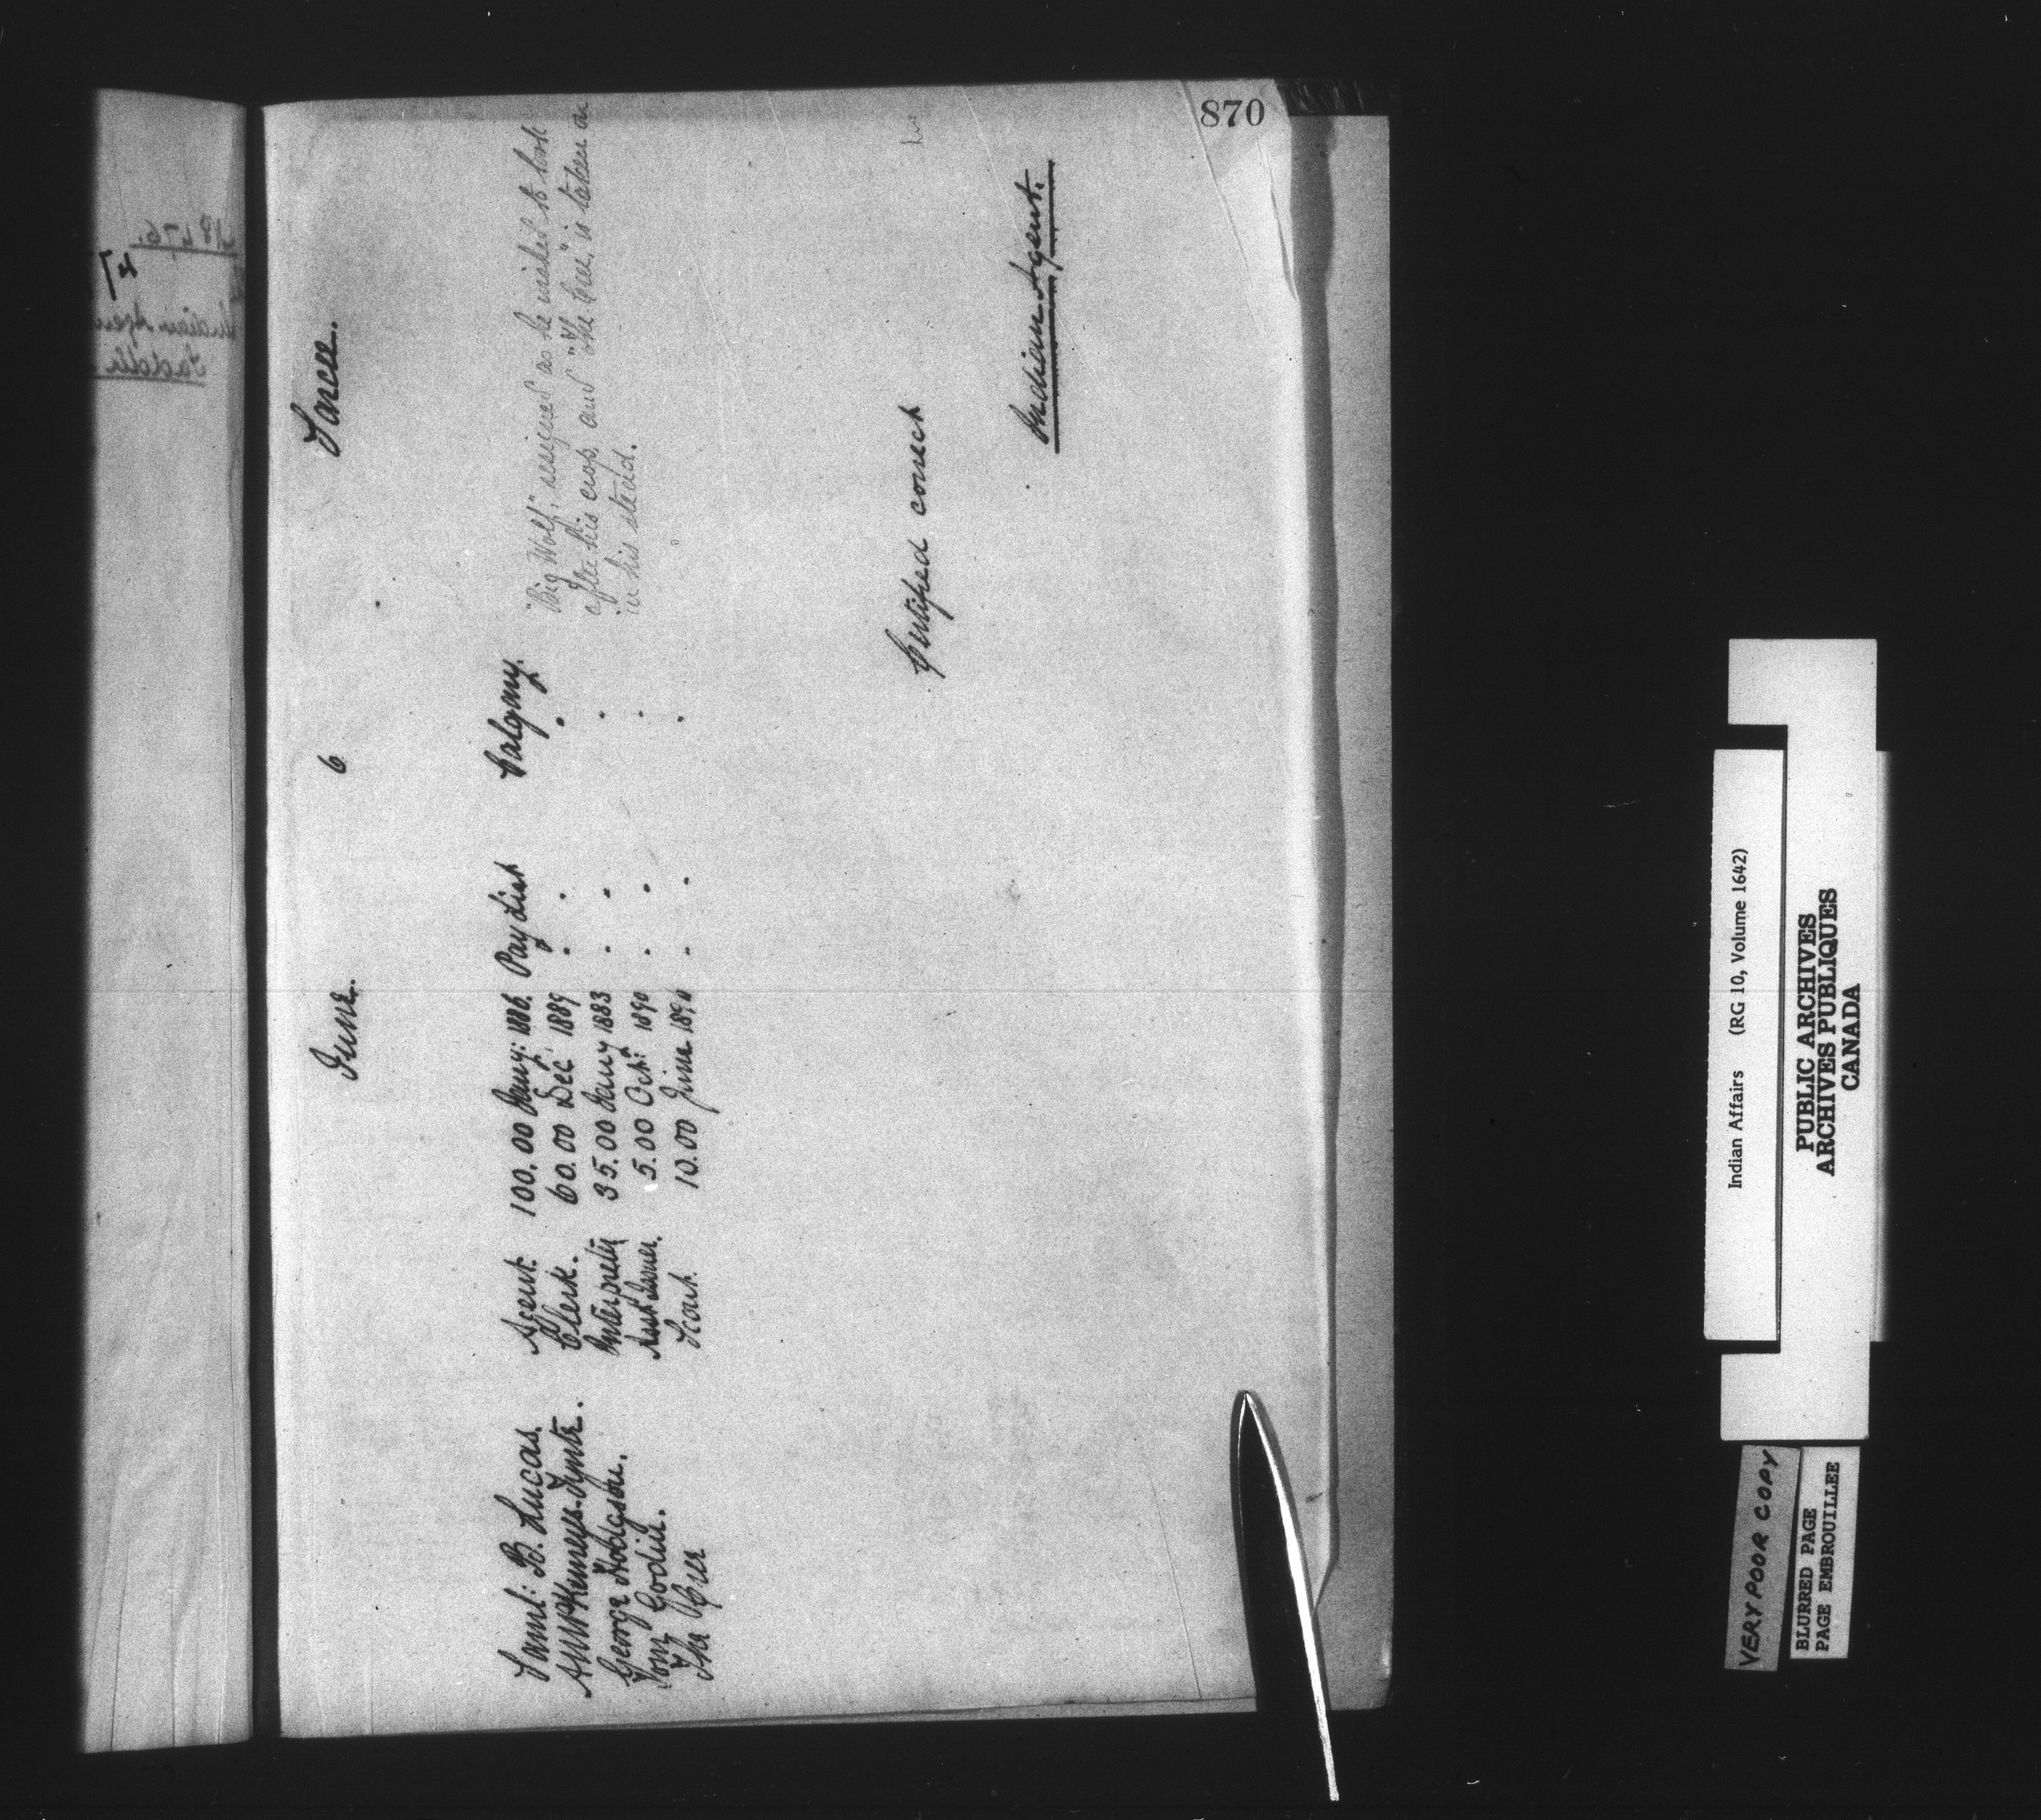 870
June. 6 Sarcee.
Saml: B. Lucas. Agent. 100.00 Jany: 1886. Pay List Calgary. "Big Wolf," resigned as he wished to look
A.W.P. Kemeys-Tynte. Clerk. 60.00 Dec: 1889 " " " after his crop, and "The Cree," is taken on
George Hodgson. Interpreter 35.00 Jany 1883 " " " in his stead.
Tom Godin. Asst Issuer. 5.00 Oct: 1890 " " "
The Cree Scout. 10.00 June " " "
Certified correct
Indian Agent.
Indian Affairs (RG 10, Volume 1642)
PUBLIC ARCHIVES
ARCHIVES PUBLIQUES
CANADA
VERY POOR COPY
BLURRED PAGE
PAGE EMBROUILLEE